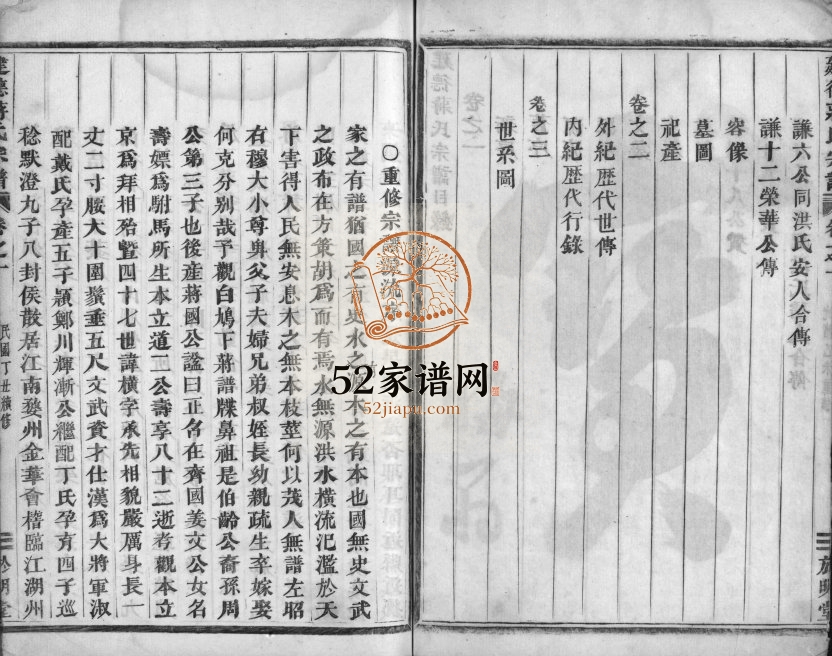 謙六公同洪氏安人合傳
謙十二榮華公傳
容像
墓圖
祀產
卷之二
外紀歷代世傳
內紀歷代行錄
卷之三
世系圖
建德蔣氏宗譜目錄
卷之一
52家谱网
52jiapu.com
〇重修宗譜源流
家之有譜猶國之有史水之木之有本也國無史文武
之政布在方策胡爲而有焉水無源洪水橫流氾濫於天
下害得人民無安息木之無本枝莖何以茂人無譜左昭
右穆大小尊卑父子夫婦兄弟叔姪長幼親疏生卒嫁娶
何克分別哉予觀白鳩下蔣譜牒鼻祖是伯齡公裔孫周
公弟三子也後産蔣國公謚曰正名在齊國姜文公女名
壽嫖爲駙馬所生本立道二公壽享八十二逝考觀本立
京爲拜相殆暨四十七世諱橫字承先相貌嚴厲身長一
丈二寸腰大十圍鬚垂五尺文武資才仕漢爲大將軍淑
配戴氏孕產五子穎鄭川輝漸公繼配丁氏孕育四子巡
稔默澄九子八封侯散居江南婺州金華會稽臨江湖州
建德蔣氏宗譜
卷之一
民國丁丑續修
於明堂